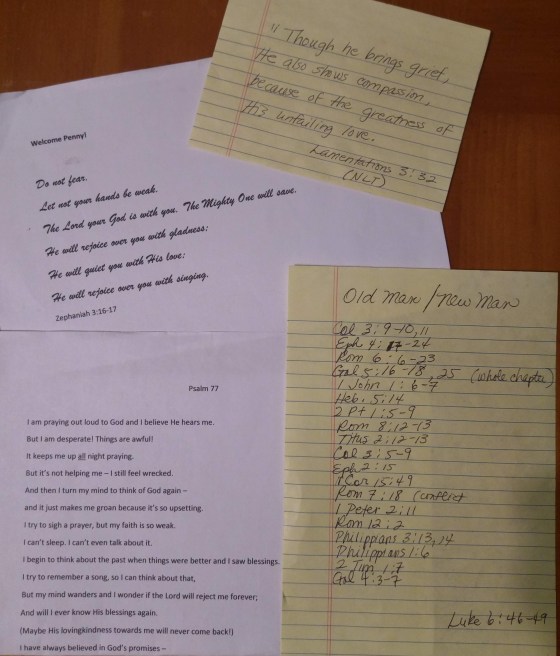 " Though he brings grief,
He also shows compassion,
because of the greatness of
His unfailing love.
Lamentations 3:32
(NLT)
Welcome Penny!
Do not fear.
Let not your hands be weak.
The Lord your God is with you. The Mighty One will save.
He will rejoice over you with gladness;
He will quiet you with His love;
He will rejoice over you with singing.
Zephaniah 3:16-17
Psalm 77
I am praying out loud to God and I believe He hears me.
But I am desperate! Things are awful!
It keeps me up all night praying.
But it's not helping me – I still feel wrecked.
And then I turn my mind to think of God again –
and it just makes me groan because it's so upsetting.
I try to sigh a prayer, but my faith is so weak.
I can't sleep. I can't even talk about it.
I begin to think about the past when things were better and I saw blessings.
I try to remember a song, so I can think about that,
But my mind wanders and I wonder if the Lord will reject me forever;
And will I ever know His blessings again.
(Maybe His lovingkindness towards me will never come back!)
I have always believed in God's promises –
Old Man / New Man
Col 3:9-10, 11
Eph 4:17-24
Rom 6:6-23
Gal 5:16-18, 25 (whole chapter)
1 John 1:6-7
Heb. 5:14
2 Pt 1:5-9
Rom 8:12-13
Titus 2:12-13
Col 3:5-9
Eph 2:15
1 Cor 15:49
Rom 7:18 (conflict
1 Peter 2:11
Rom 12:2
Philippians 3:13,14
Philippians 1:6
2 Tim 1:7
Gal 4:3-7
Luke 6:46-49